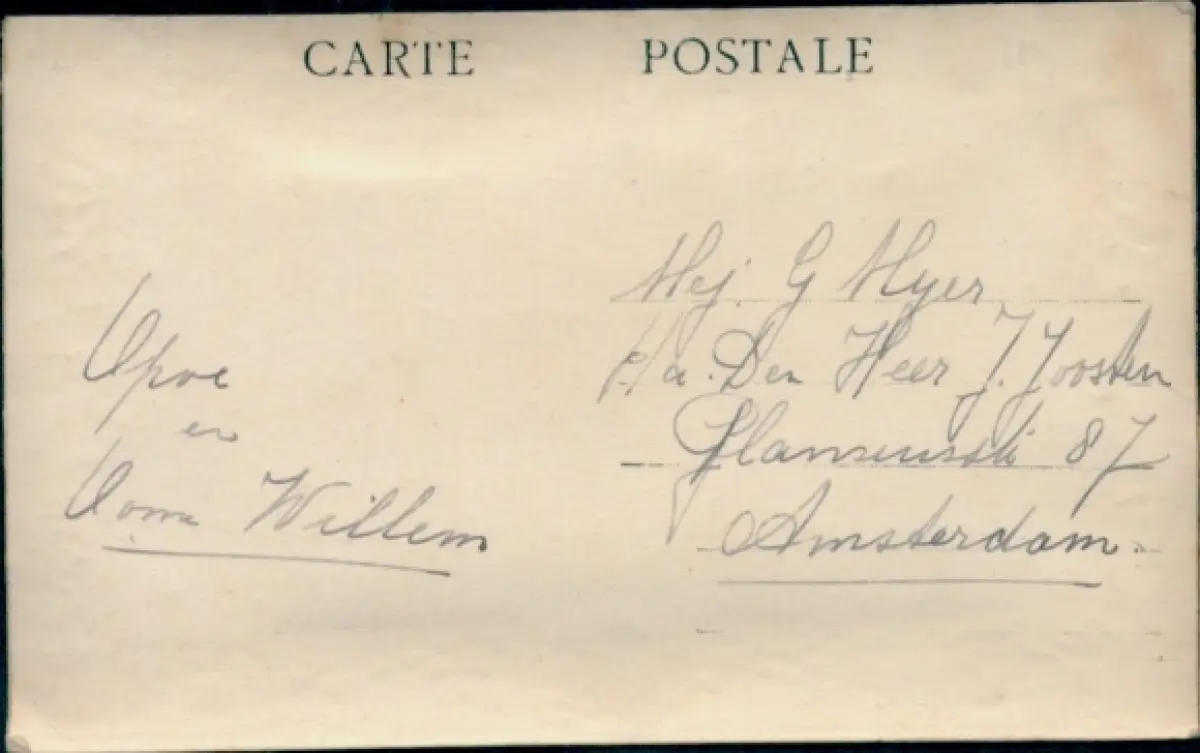 CARTE POSTALE
Opoe
en
Oom Willem
Mej. G Myer
p/a. Den Heer J. Joosten
87
Amsterdam.